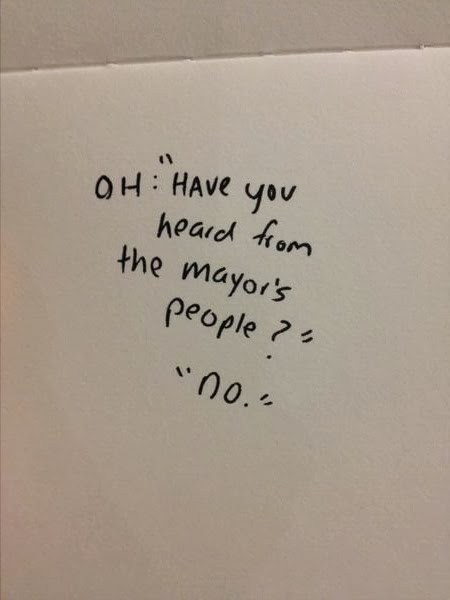 OH: "HAve you
heard from
the mayor's
people?"
"no."